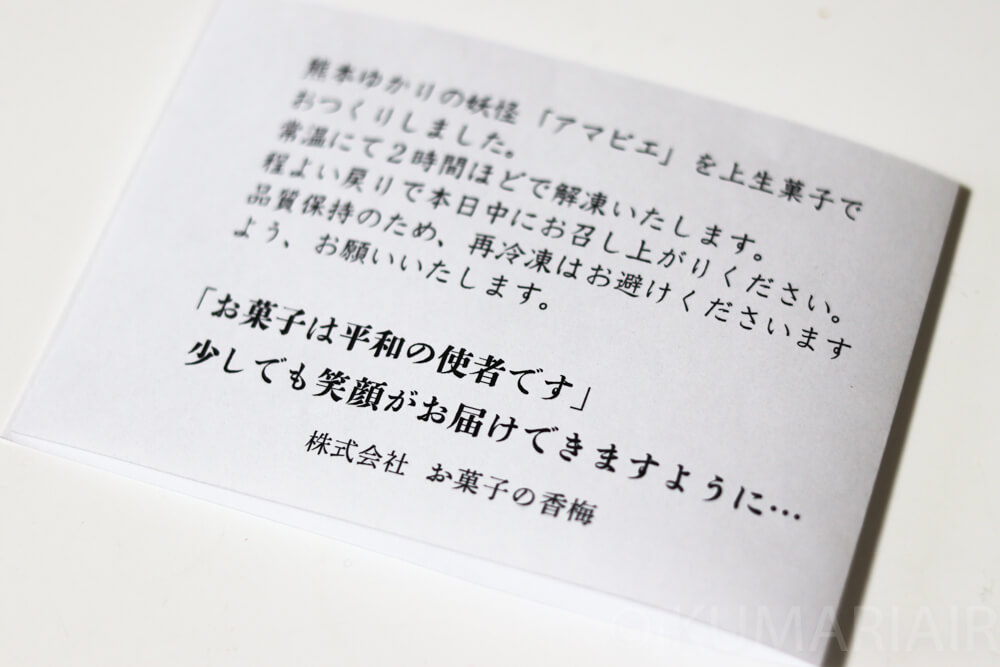 熊本ゆかりの妖怪「アマビエ」を上生菓子で
おつくりしました。
常温にて2時間ほどで解凍いたします。
程よい戻りで本日中にお召し上がりください。
品質保持のため、再冷凍はお避けくださいます
よう、お願いいたします。
「お菓子は平和の使者です」
少しでも笑顔がお届けできますように…
株式会社 お菓子の香梅
©KUMARIAIR